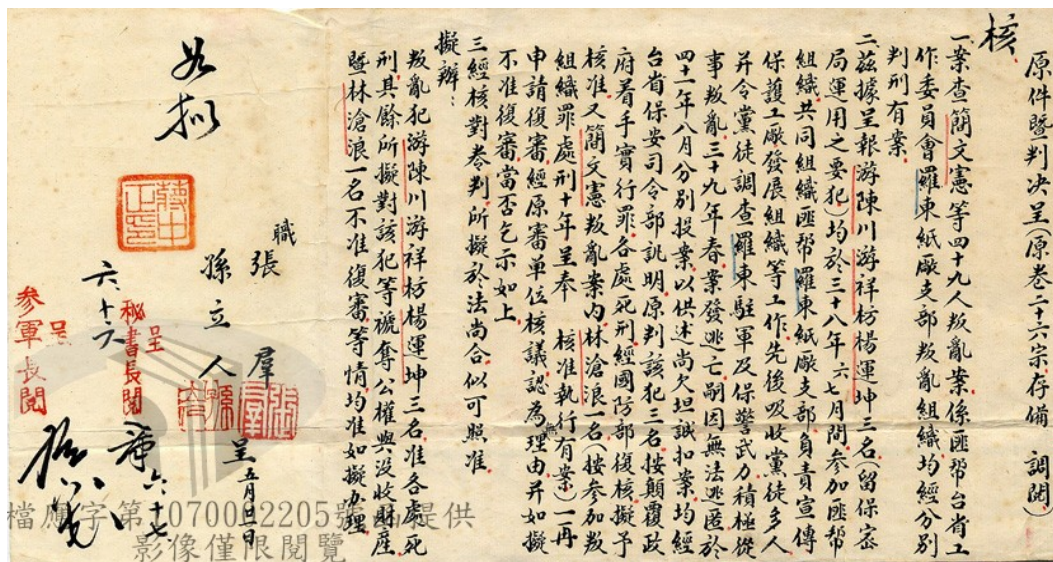 原件暨判決呈(原卷二十六宗存備 調閱)
核
一案查簡文憲等四十九人叛亂案係匪幫台省工
作委員會羅東紙廠支部叛亂組織均經分別
判刑有案
二茲據呈報游陳川游祥枋楊運坤三名(留保密
局運用之要犯)均於三十八年六七月間參加匪幫
組織共同組織匪幫羅東紙廠支部負責宣傳
保護工廠發展組織等工作先後吸收黨徒多人
并令黨徒調查羅東駐軍及保警武力積極從
事叛亂三十九年春案發逃亡嗣因無法逃匿於
四十一年八月分別投案以供述尚欠坦誠扣案均經
台省保安司令部訊明原判該犯三名按顛覆政
府着手實行罪各處死刑經國防部復核擬予
核准又簡文憲叛亂案內林滄浪一名(按參加叛
組織罪處刑十年呈奉 核准執行有案)一再
申請復審經原審單位核議認為無理由并如擬
不准復審當否乞示如上
三經核對卷判所擬於法尚合似可照准
擬辦:
叛亂犯游陳川游祥枋楊運坤三名准各處死
刑其餘所擬對該犯等褫奪公權與沒收財產
暨林滄浪一名不准復審等情均准如擬辦理
職 張 羣
孫立人 呈 五月 日
張羣
呈
秘書長閱
六十七
呈
參軍長閱
如擬
蔣中正印
六十六
檔應字第1070002205號 提供
影像僅限閱覽